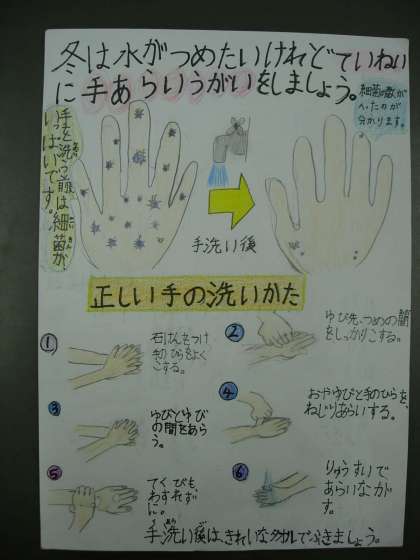 冬は水がつめたいけれどていねい
に手あらいうがいをしましょう。
細菌の数が
へったのが
分かります。
手を洗う前は細菌が、
いっぱいです。
手洗い後
正しい手の洗いかた
①
石けんをつけ
手のひらをよく
こする。
②
ゆび先、つめの間
をしっかりこする。
③
ゆびとゆび
の間をあら
う。
④
おやゆびと手のひらを、
ねじりあらいする。
⑤
てくびも、
わすれず
に。
⑥
りゅうすいで
あらいなが
す。
手洗い後は、きれいなタオルでふきましょう。